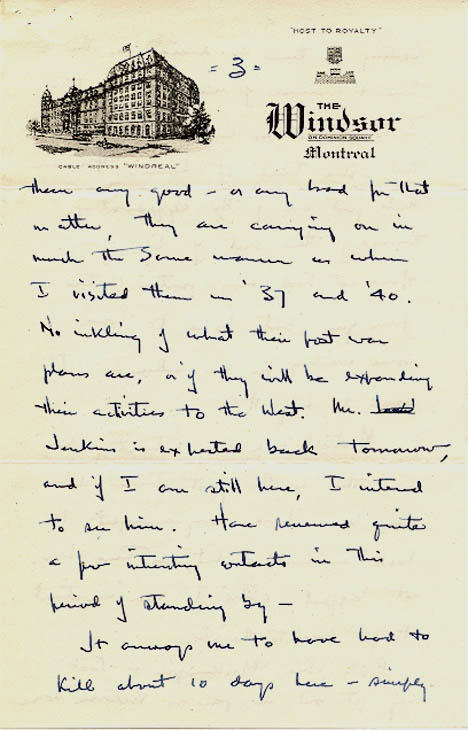 "HOST TO ROYALTY"
= 3 =
THE
Windsor
ON DOMINION SQUARE
Montreal
CABLE ADDRESS "WINDREAL"
them any good – or any bad for that
matter, they are carrying on in
much the same manner as when
I visited them in '37 and '40.
No inkling of what their post war
plans are, or if they will be expanding
their activities to the West. Mr.
Jenkins is expected back tomorrow,
and if I am still here, I intend
to see him. Have renewed quite
a few interesting contacts in this
period of standing by –
It annoys me to have had to
kill about 10 days here – simply